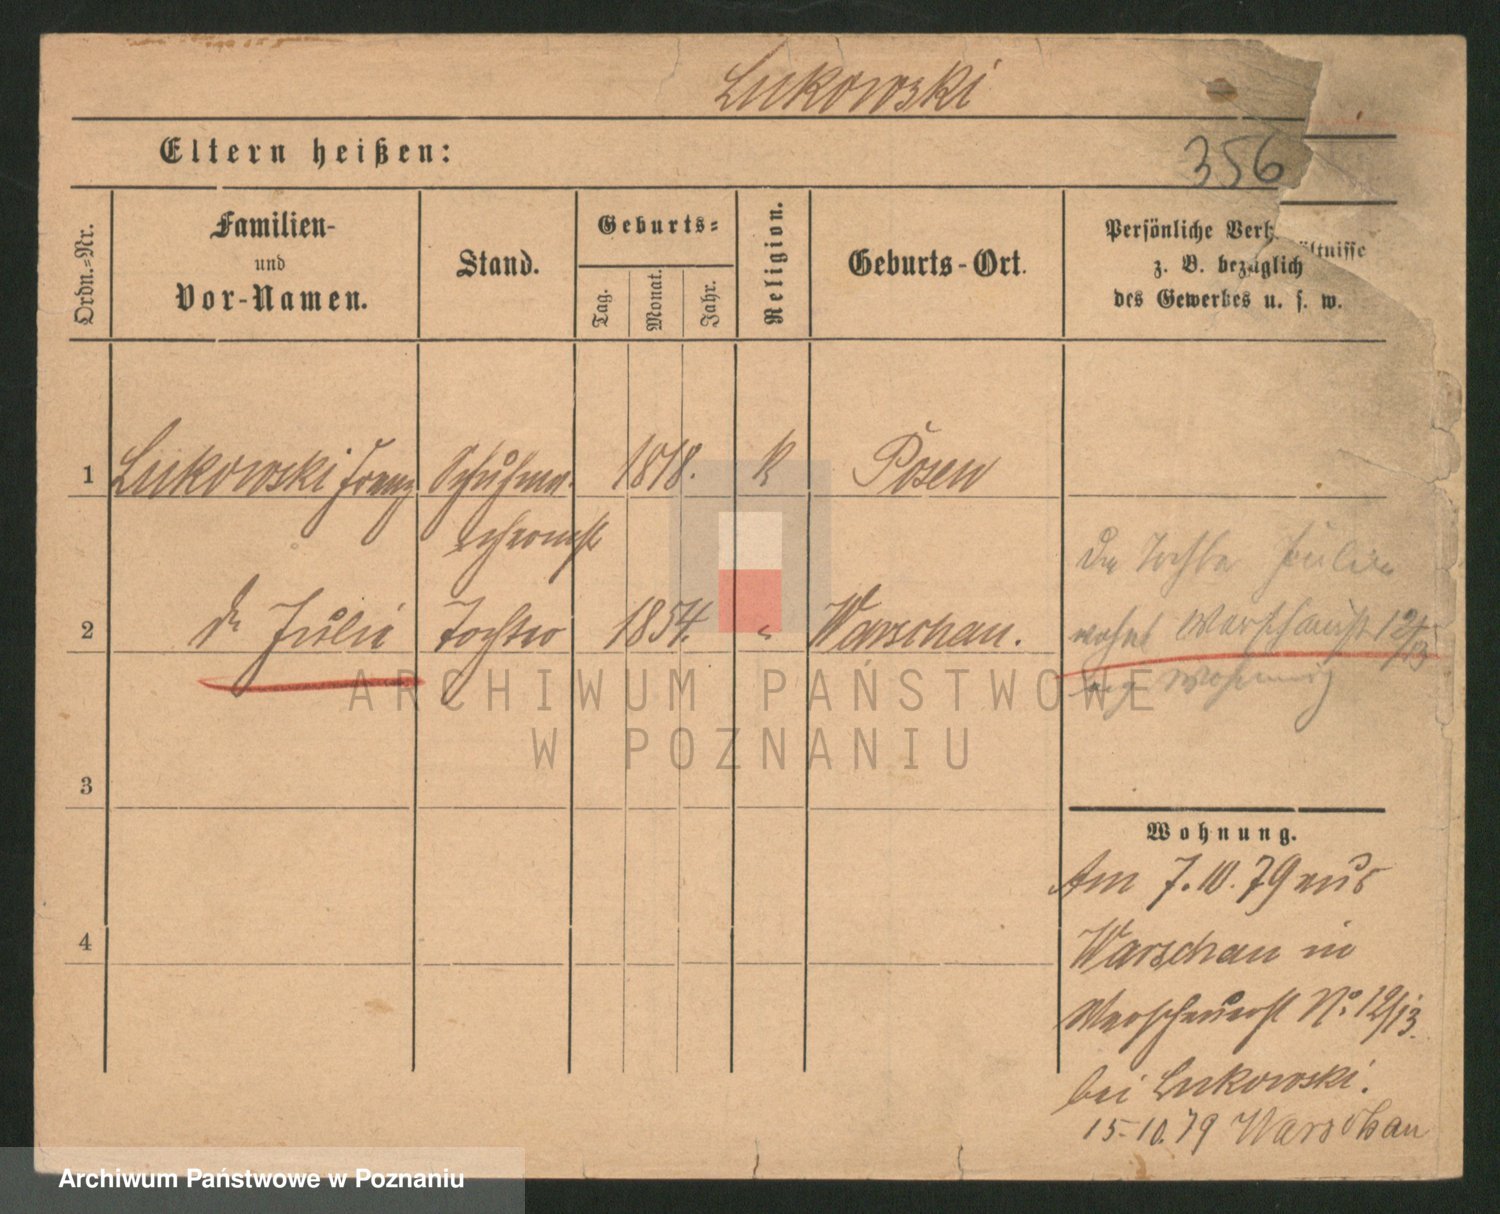 Lukowski
356
Eltern heißen:
Ordn.-Nr.
Familien-
und
Vor-Namen.
Stand.
Geburts-
Tag.
Monat.
Jahr.
Religion.
Geburts-Ort.
Persönliche Verhältnisse
z. B. bezüglich
des Gewerbes u. s. w.
1 Lukowski Franz Schuhma- 1818. K Posen
chermstr
2 do Julie Tochter 1854. " Warschau.
Die Tochter Julie
wohnt Warschauerstr 12/13
Wohnung
3
4
Wohnung.
Am 7.10.79 aus
Warschau in
Warschauerst No. 12/13.
bei Lukowski.
15.10.79 Warschau
ARCHIWUM PAŃSTWOWE
W POZNANIU
Archiwum Państwowe w Poznaniu